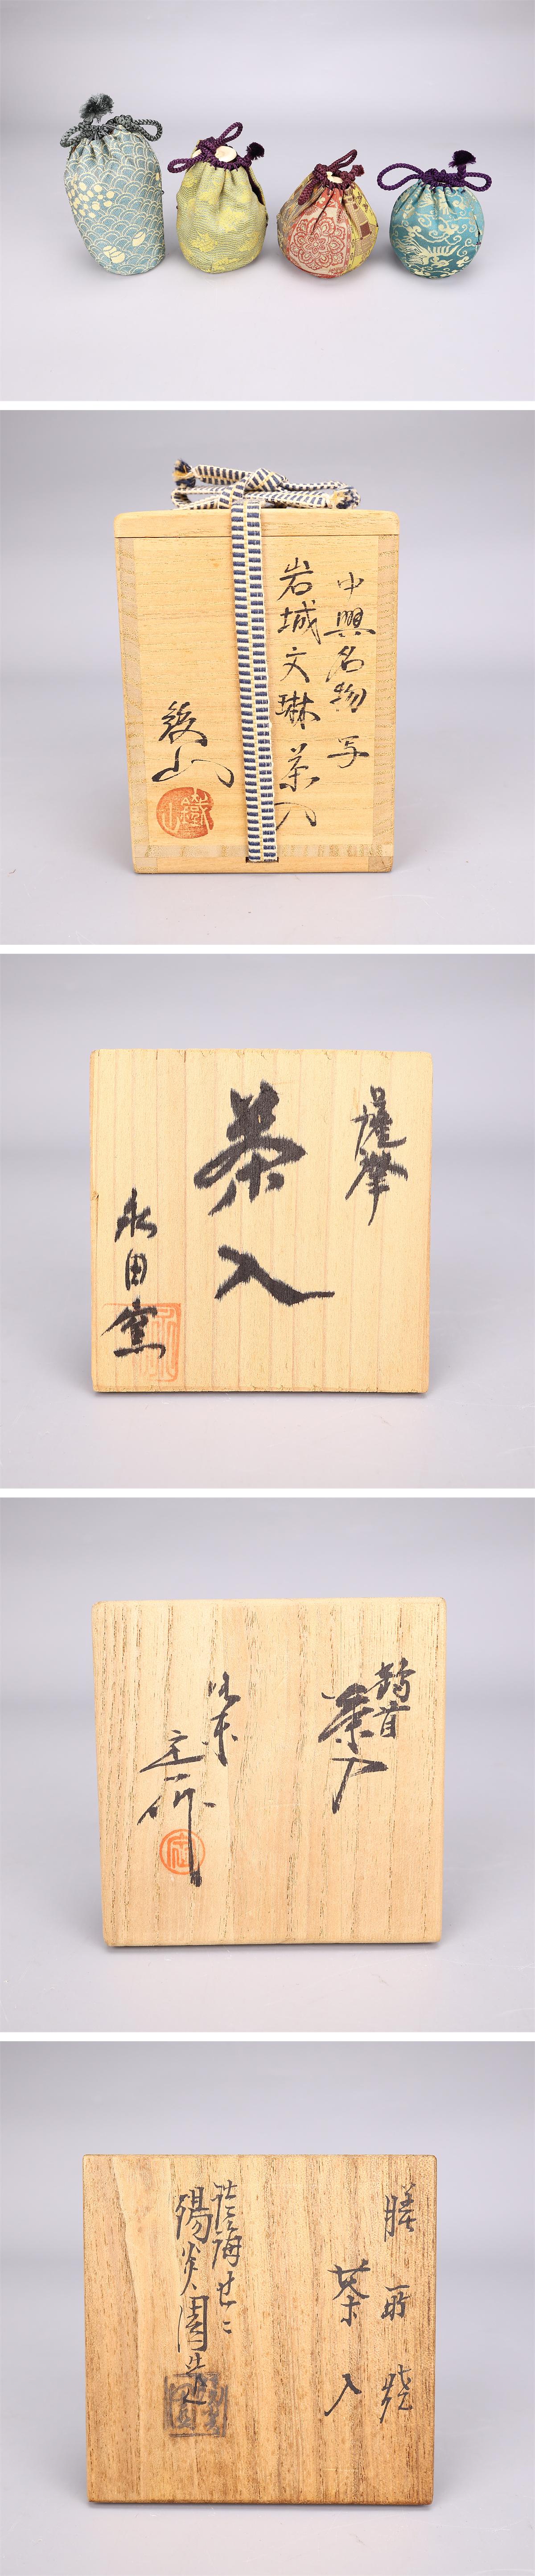 中興名物 写
岩城文琳茶入
鐵山
薩摩
茶入
永田窯
鶴首
茶入
定一作
膳所焼
茶入
陽炎園造